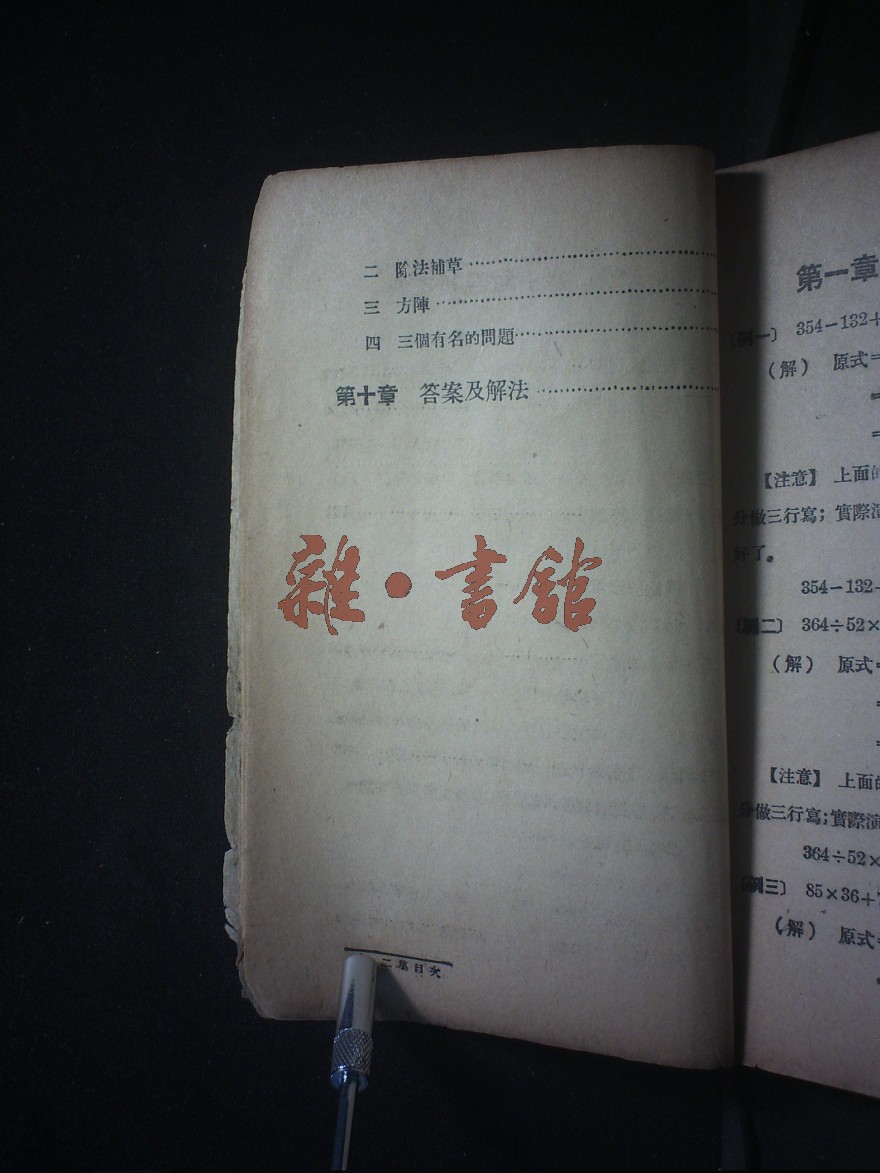 二 除法補草
三 方陣
四 三個有名的問題
第十章 答案及解法
雜·書館
二集目次
第一章
〔例一〕 354-132+
(解) 原式=
=
=
【注意】 上面的
分做三行寫;實際演
好了。
354-132-
〔例二〕 364÷52×
(解) 原式=
=
=
【注意】 上面的
分做三行寫;實際演
364÷52×
〔例三〕 85×36+
(解) 原式=
=